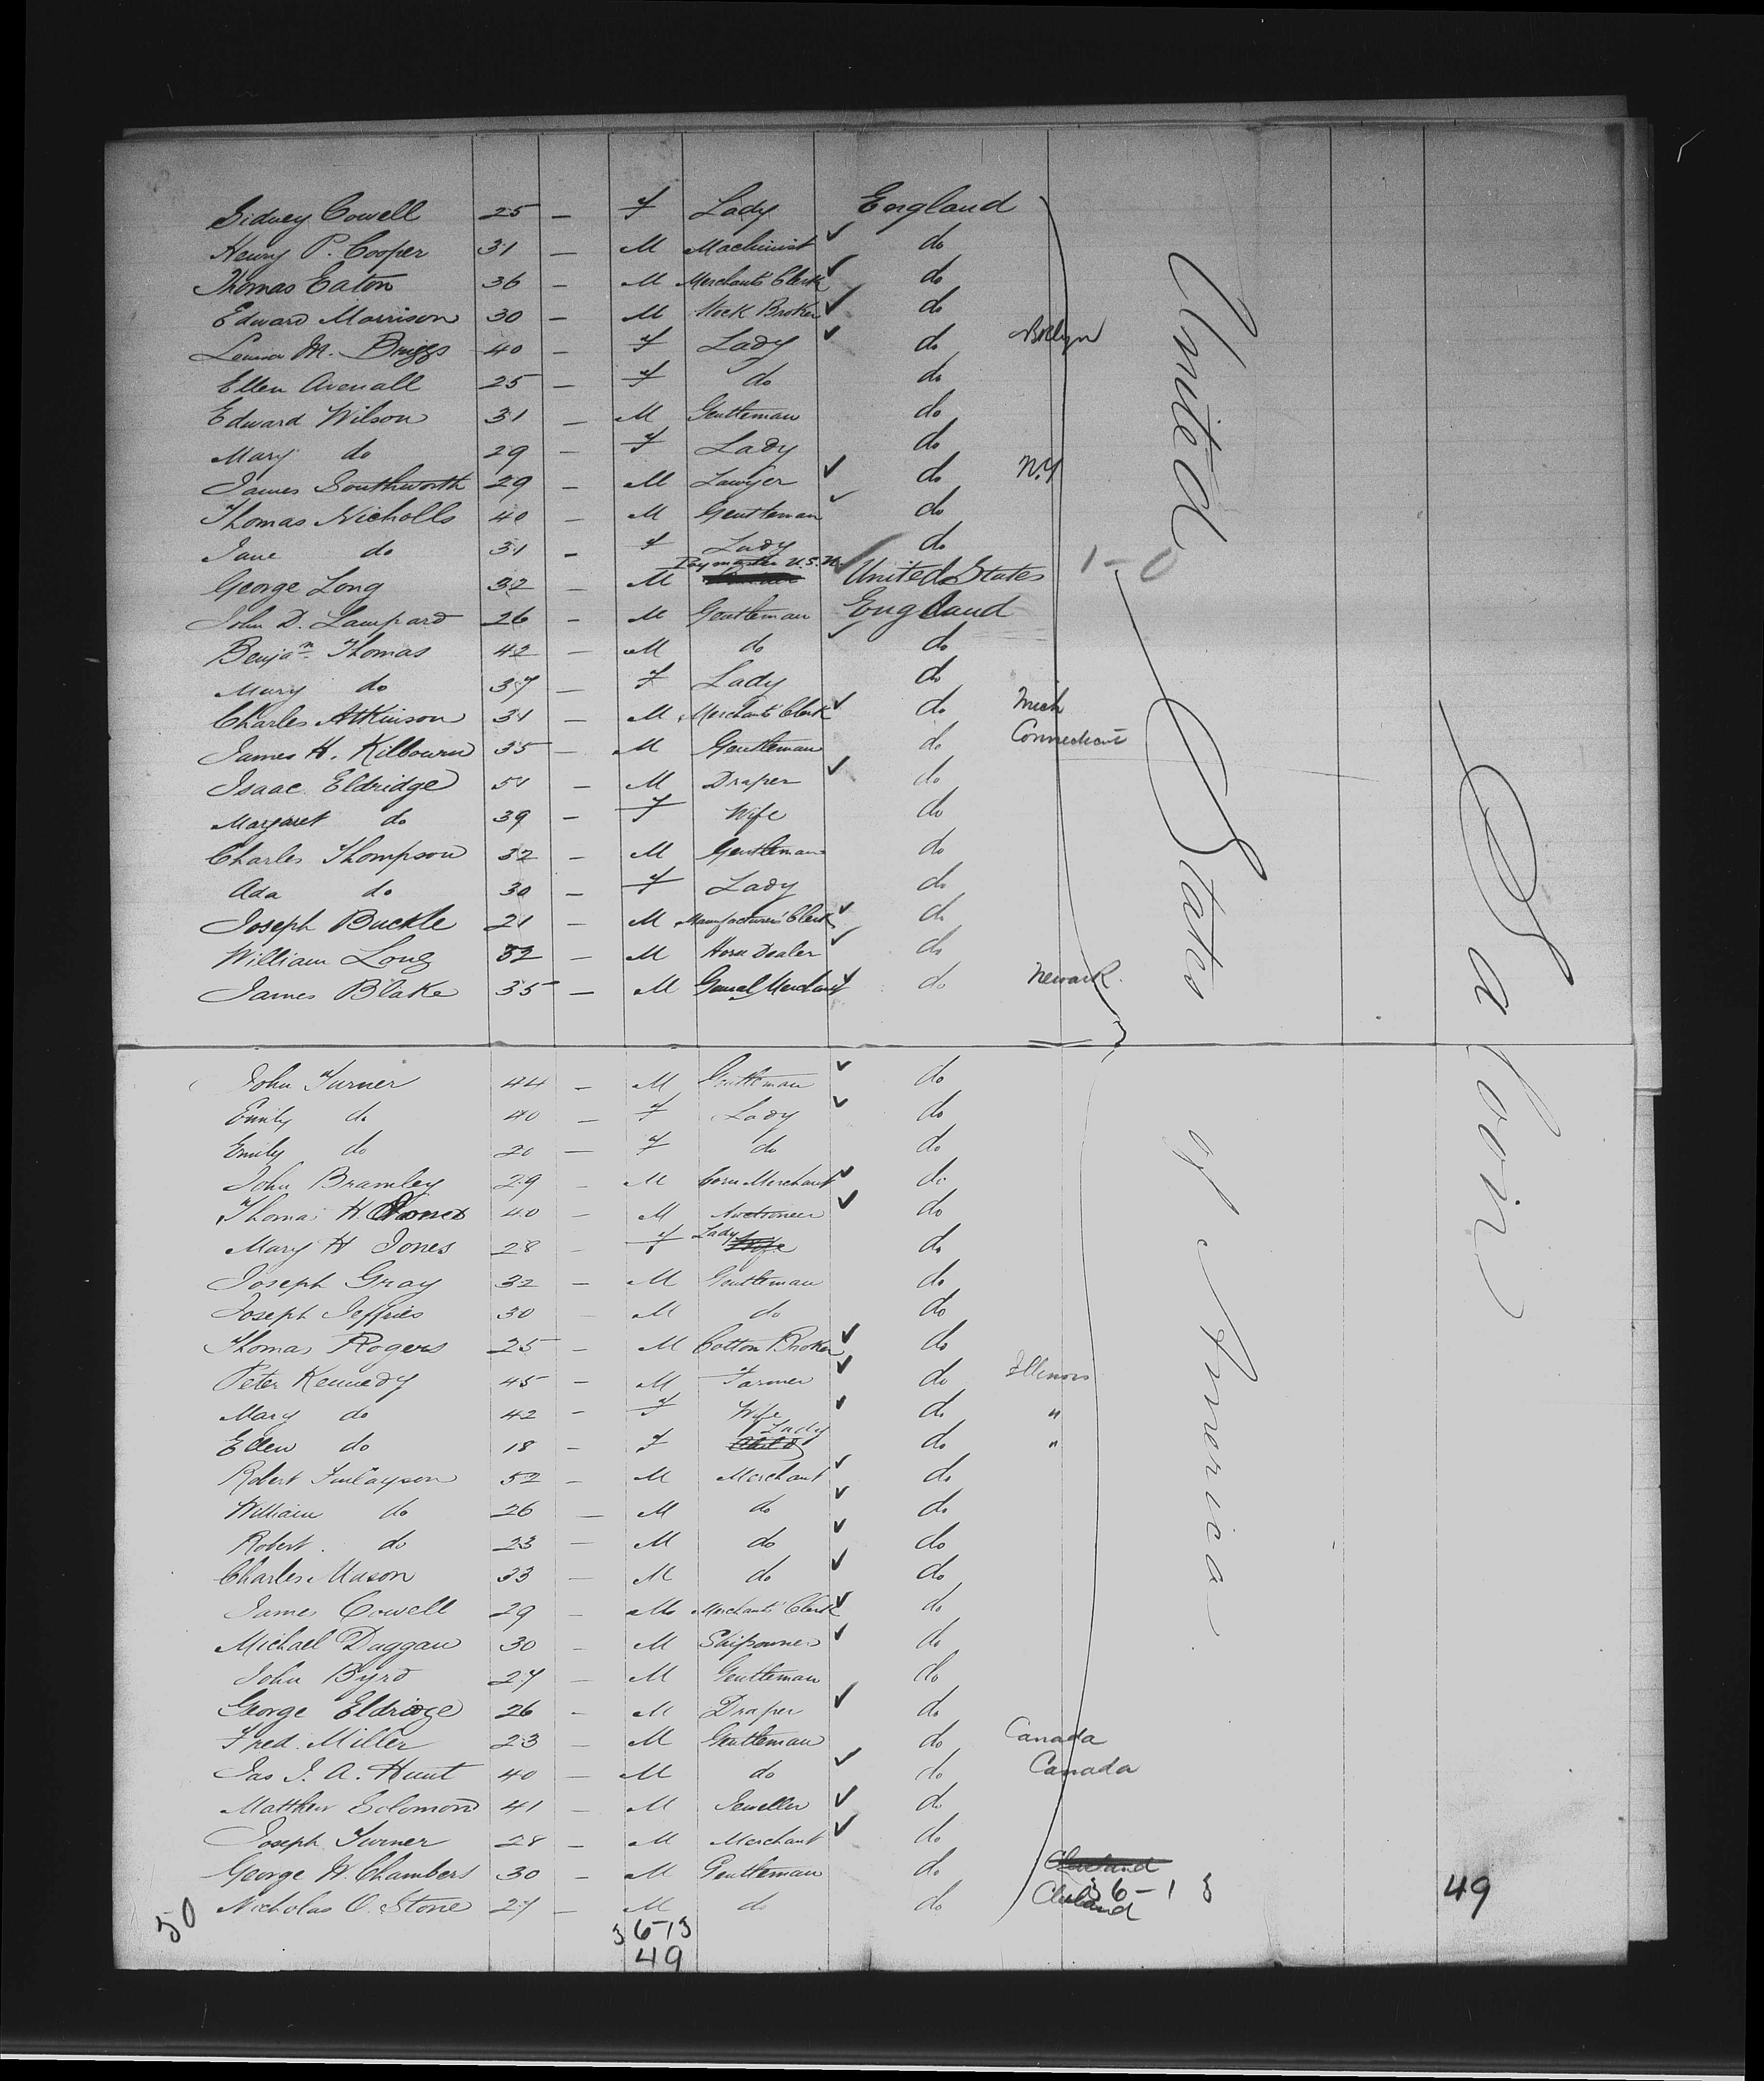 Sidney Cowell 25 — F Lady England
Henry P. Cooper 31 — M Machinist ✓ do
Thomas Eaton 36 — M Merchants Clerk ✓ do
Edward Morrison 30 — M Stock Broker ✓ do
Louisa M. Briggs 40 — F Lady ✓ do Bklyn
Ellen Avenall 25 — F do do
Edward Wilson 31 — M Gentleman do
Mary do 29 — F Lady do
James Southworth 29 — M Lawyer ✓ do N.Y
Thomas Nicholls 40 — M Gentleman ✓ do
Jane do 31 — F Lady do
George Long 32 — M Paymaster U.S.N. ✓ United States 1-0
John D. Lampard 26 — M Gentleman England
Benjan Thomas 42 — M do ✓ do
Mary do 37 — F Lady do
Charles Atkinson 31 — M Merchants Clerk ✓ do Mich
James H. Kilbourn 35 — M Gentleman do Connecticut
Isaac Eldridge 51 — M Draper ✓ do
Margaret do 39 — F Wife do
Charles Thompson 32 — M Gentleman do
Ada do 30 — F Lady do
Joseph Buckle 21 — M Manufacturers Clerk ✓ do
William Long 32 — M Horse Dealer ✓ do
James Blake 35 — M General Merchant ✓ do Newark.
John Turner 44 — M Gentleman ✓ do
Emily do 40 — F Lady ✓ do
Emily do 20 — F do do
John Bramley 29 M Corn Merchant ✓ do
Thomas H. Jones 40 — M Auctioneer ✓ do
Mary H Jones 28 — F Lady Wife do
Joseph Gray 32 — M Gentleman do
Joseph Jeffries 30 — M do do
Thomas Rogers 25 — M Cotton Broker ✓ do
Peter Kennedy 45 — M Farmer ✓ do Illinois
Mary do 42 — F Wife ✓ do "
Ellen do 18 — F Lady Child do "
Robert Finlayson 52 — M Merchant ✓ do
William do 26 — M do ✓ do
Robert. do 23 — M do ✓ do
Charles Mason 33 — M do ✓ do
James Cowell 29 — M Merchants Clerk ✓ do
Michael Duggan 30 — M Shipowner ✓ do
John Byrd 27 — M Gentleman do
George Eldridge 26 — M Draper ✓ do
Fred. Miller 23 — M Gentleman do Canada
Jas J. A. Hunt 40 — M do ✓ do Canada
Matthew Solomon 41 — M Jeweller ✓ do
Joseph Turner 28 — M Merchant ✓ do
George W. Chambers 30 — M Gentleman do
Nicholas O. Stone 27 — M do do Cleland
36-13 49
50 36-13
49
United States of America
Saloon